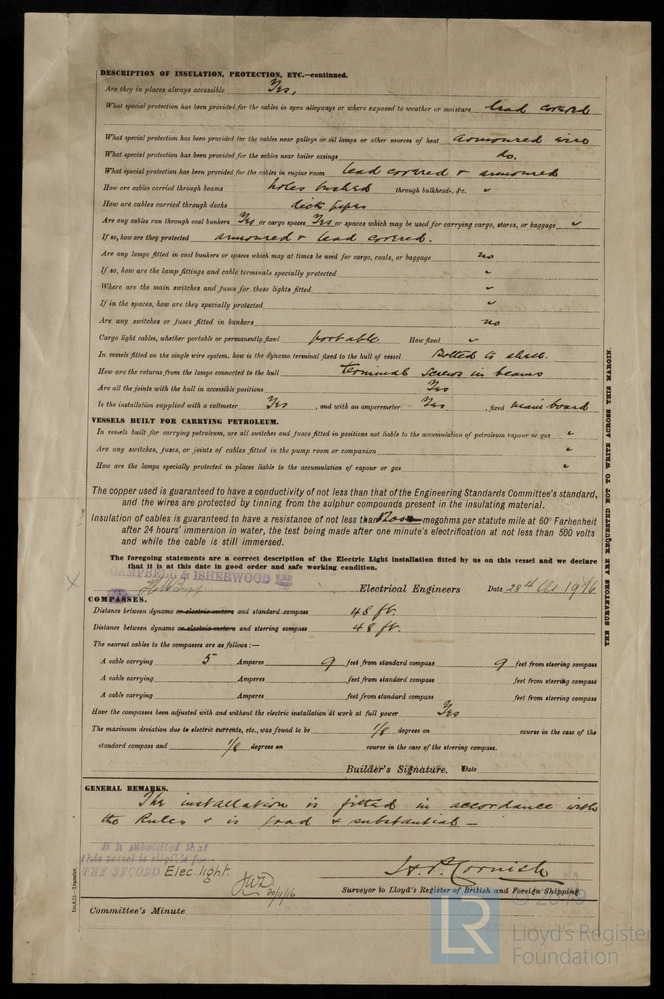 DESCRIPTION OF INSULATION, PROTECTION, ETC.—continued.
Are they in places always accessible Yes,
What special protection has been provided for the cables in open alleyways or where exposed to weather or moisture lead covered
What special protection has been provided for the cables near galleys or oil lamps or other sources of heat armoured wire
What special protection has been provided for the cables near boiler casings do.
What special protection has been provided for the cables in engine room lead covered & armoured
How are cables carried through beams holes bushed through bulkheads, &c. "
How are cables carried through decks deck pipes
Are any cables run through coal bunkers Yes or cargo spaces Yes or spaces which may be used for carrying cargo, stores, or baggage "
If so, how are they protected armoured & lead covered.
Are any lamps fitted in coal bunkers or spaces which may at times be used for cargo, coals, or baggage no
If so, how are the lamp fittings and cable terminals specially protected "
Where are the main switches and fuses for these lights fitted "
If in the spaces, how are they specially protected "
Are any switches or fuses fitted in bunkers no
Cargo light cables, whether portable or permanently fixed portable How fixed "
In vessels fitted on the single wire system, how is the dynamo terminal fixed to the hull of vessel Bolted to
How are the returns from the lamps connected to the hull terminal screws in beams
Are all the joints with the hull in accessible positions Yes
Is the installation supplied with a voltmeter Yes , and with an amperemeter Yes , fixed main board
VESSELS BUILT FOR CARRYING PETROLEUM.
In vessels built for carrying petroleum, are all switches and fuses fitted in positions not liable to the accumulation of petroleum vapour or gas "
Are any switches, fuses, or joints of cables fitted in the pump room or companion "
How are the lamps specially protected in places liable to the accumulation of vapour or gas "
The copper used is guaranteed to have a conductivity of not less than that of the Engineering Standards Committee's standard,
and the wires are protected by tinning from the sulphur compounds present in the insulating material.
Insulation of cables is guaranteed to have a resistance of not less than megohms per statute mile at 60° Farhenheit
after 24 hours' immersion in water, the test being made after one minute's electrification at not less than 500 volts
and while the cable is still immersed.
The foregoing statements are a correct description of the Electric Light installation fitted by us on this vessel and we declare
that it is at this date in good order and safe working condition.
CAMPBELL & ISHERWOOD LD
Electrical Engineers Date 28th Oct 1916
COMPASSES.
Distance between dynamo or electric motors and standard compass 48 ft.
Distance between dynamo or electric motors and steering compass 48 ft.
The nearest cables to the compasses are as follows:—
A cable carrying 5 Amperes 9 feet from standard compass 9 feet from steering compass
A cable carrying Amperes feet from standard compass feet from steering compass
A cable carrying Amperes feet from standard compass feet from steering compass
Have the compasses been adjusted with and without the electric installation at work at full power Yes
The maximum deviation due to electric currents, etc., was found to be 1/8 degrees on course in the case of the
standard compass and 1/8 degrees on course in the case of the steering compass.
Builder's Signature. Date
GENERAL REMARKS.
The installation is fitted in accordance with
the Rules & is good & substantial —
It is submitted that
this vessel is eligible for
THE RECORD Elec. light.
JWD 20/11/16
H.P. Cornish
Surveyor to Lloyd's Register of British and Foreign Shipping.
Committee's Minute
THE SURVEYORS ARE REQUESTED NOT TO WRITE ACROSS THIS MARGIN.
© 2019
LR
Lloyd's Register
Foundation